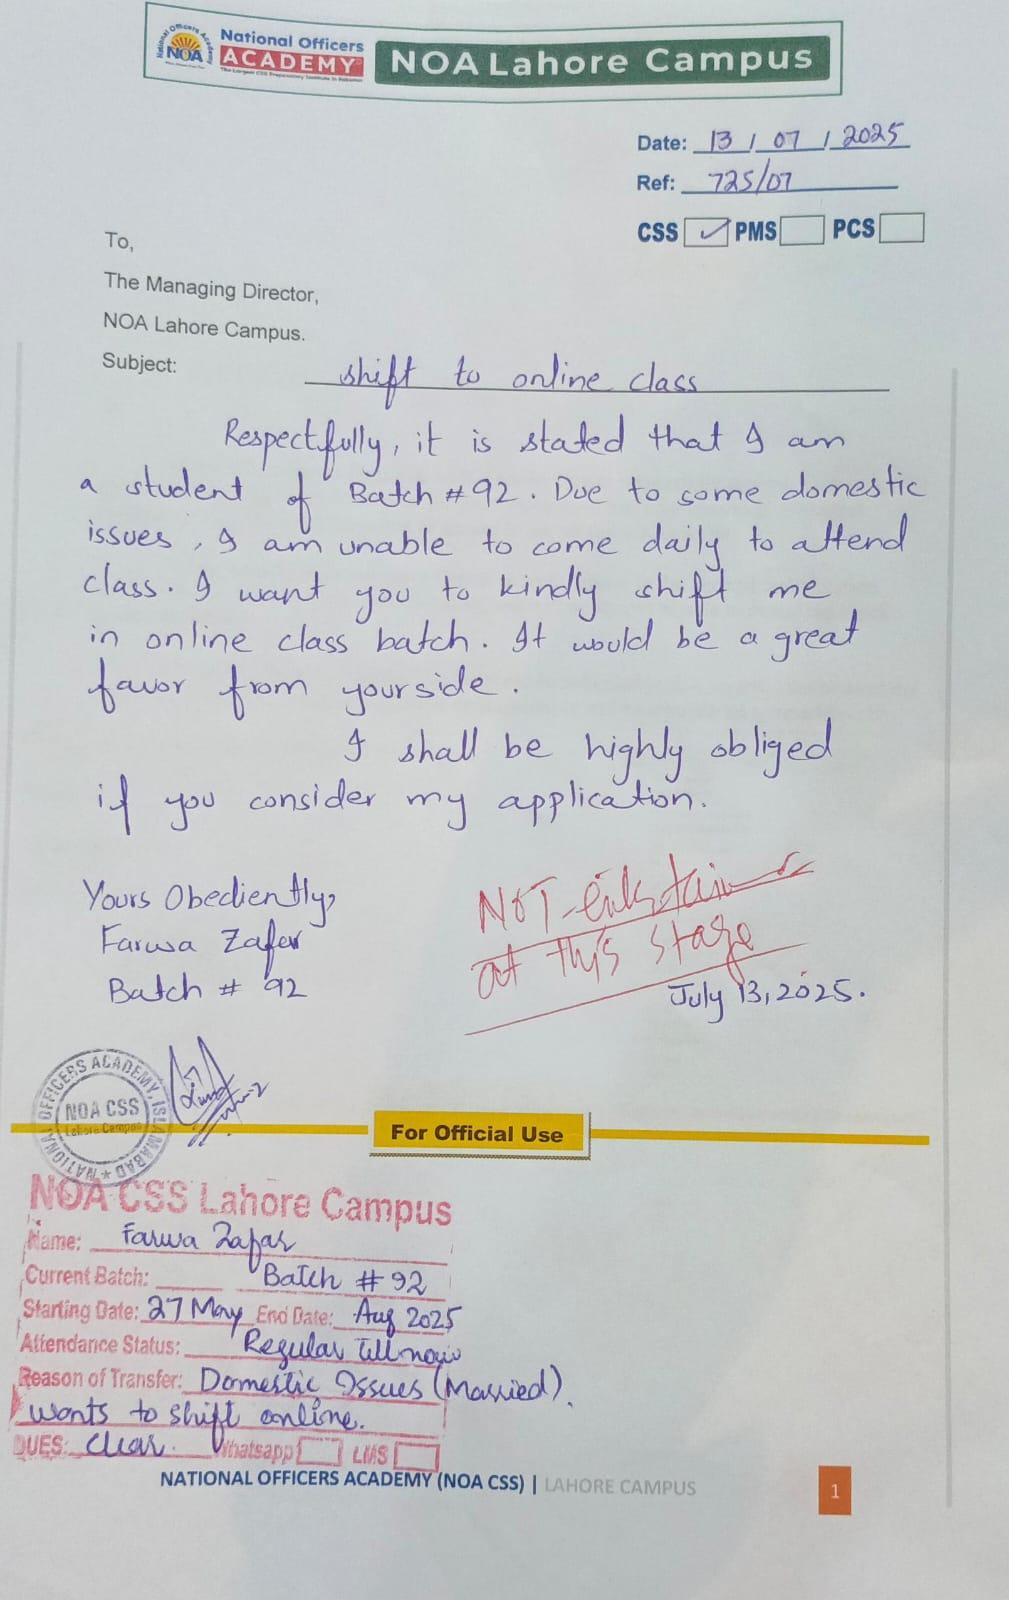 National Officers
ACADEMY
NOA
NOA Lahore Campus
Date: 13 / 07 / 2025
Ref: 725/07
CSS ✓ PMS PCS
To,
The Managing Director,
NOA Lahore Campus.
Subject: shift to online class
Respectfully, it is stated that I am
a student of Batch # 92. Due to some domestic
issues, I am unable to come daily to attend
class. I want you to kindly shift me
in online class batch. It would be a great
favor from your side.
I shall be highly obliged
if you consider my application.
Yours Obediently,
Farwa Zafer
Batch # 92
NOT
at this stage
July 13, 2025.
NATIONAL OFFICERS ACADEMY, ISLAMABAD
NOA CSS
Lahore Campus
For Official Use
NOA CSS Lahore Campus
Name: Farwa Zafar
Current Batch: Batch # 92
Starting Date: 27 May End Date: Aug 2025
Attendance Status: Regular till now
Reason of Transfer: Domestic Issues (Married).
wants to shift online.
DUES: Clear. Whatsapp LMS
NATIONAL OFFICERS ACADEMY (NOA CSS) | LAHORE CAMPUS
1